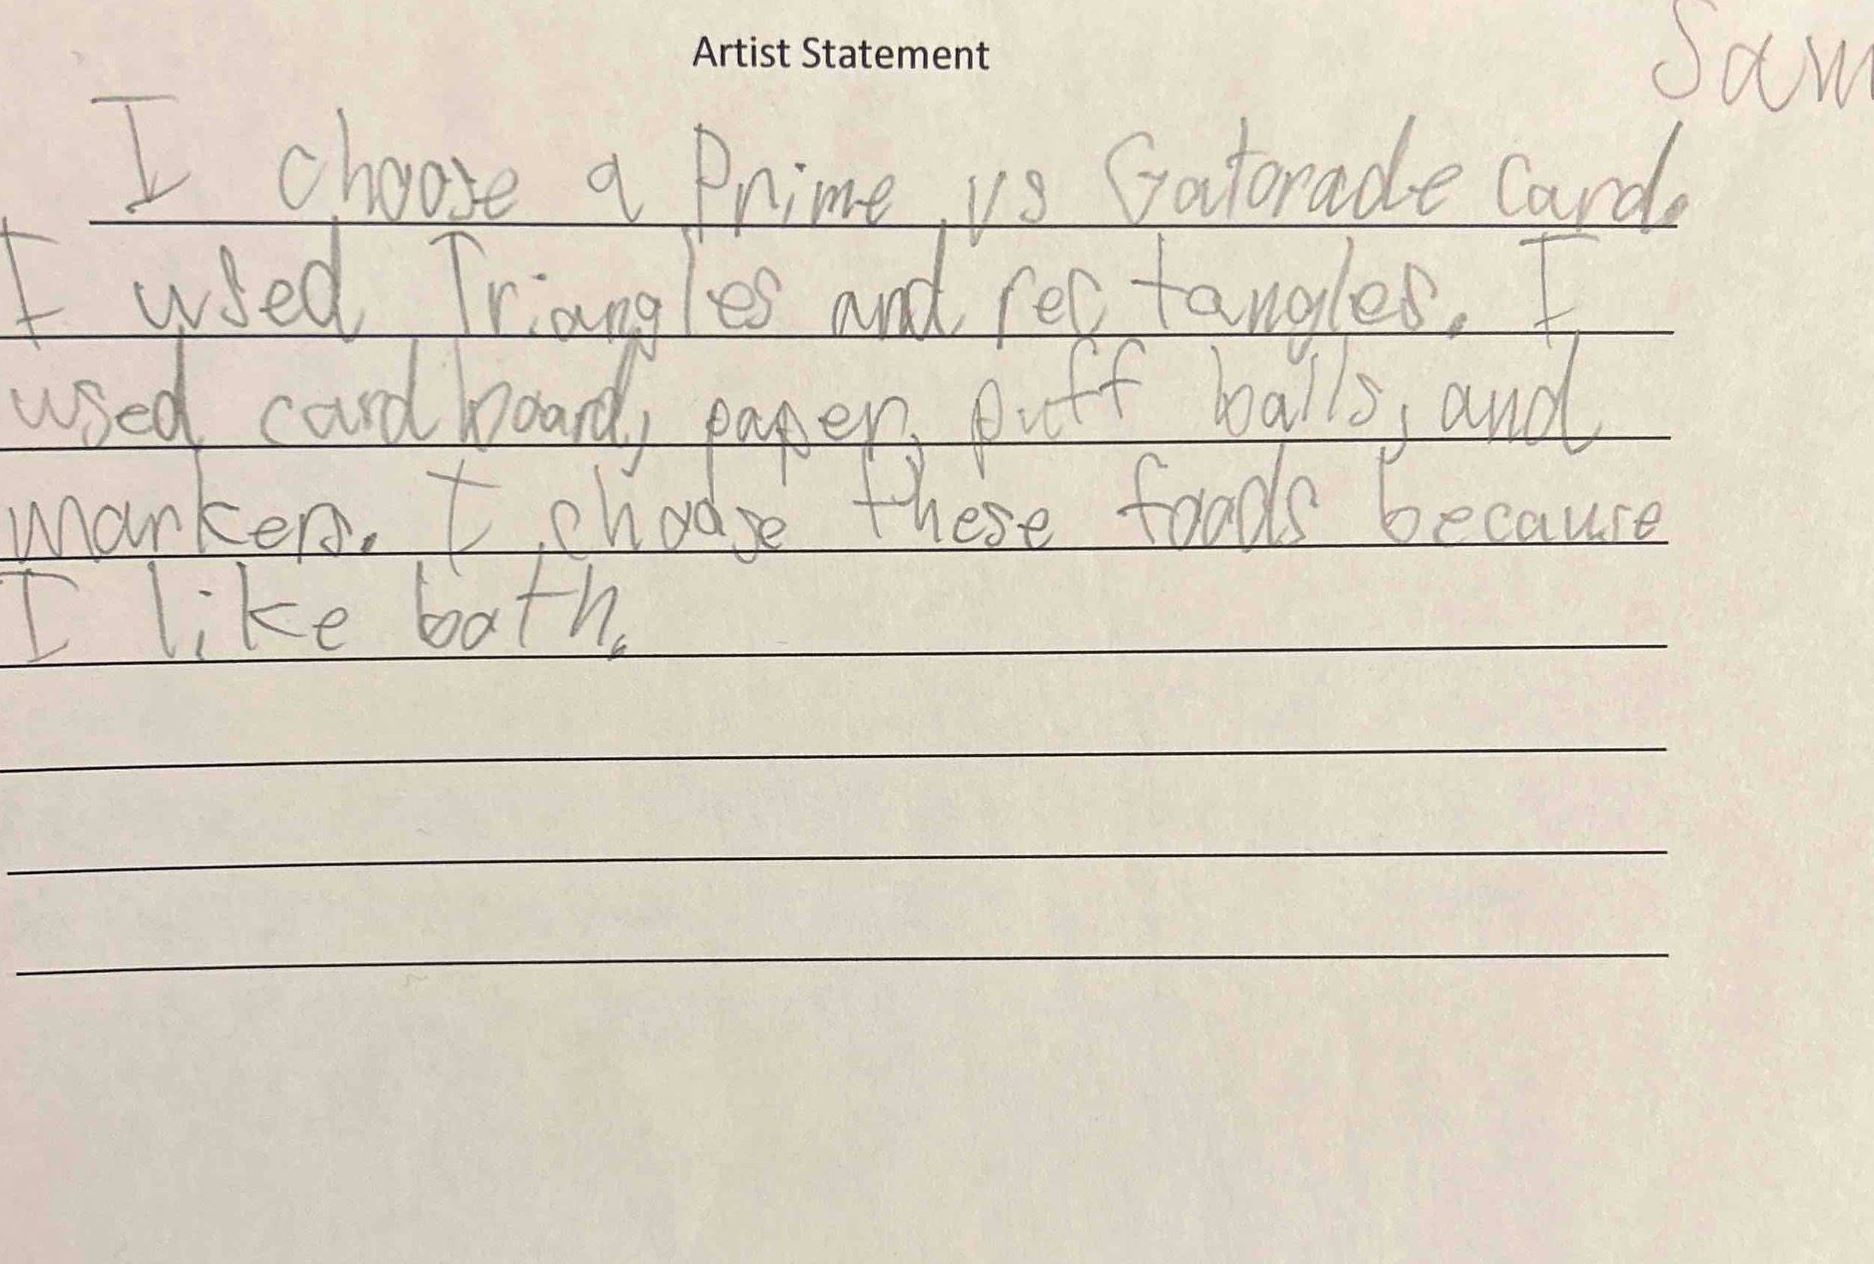 Artist Statement
Sam
I choose a Prime vs Gatorade Card.
I used Triangles and rectangles. I
used cardboard, paper, puff balls, and
markers. I choose these foods because
I like both.